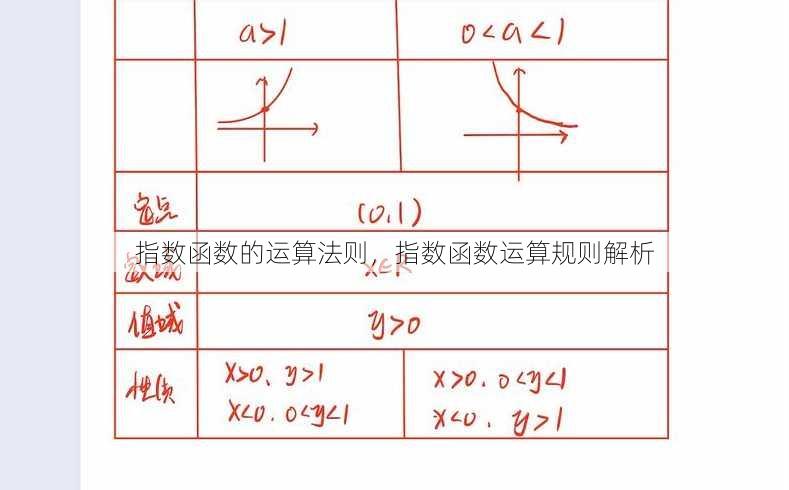 a>1 0<a<1
定点 (0,1)
指数函数的运算法则，指数函数运算规则解析
定义域 x∈R
值域 y>0
性质 x>0、y>1 x>0、0<y<1
x<0、0<y<1 x<0、y>1